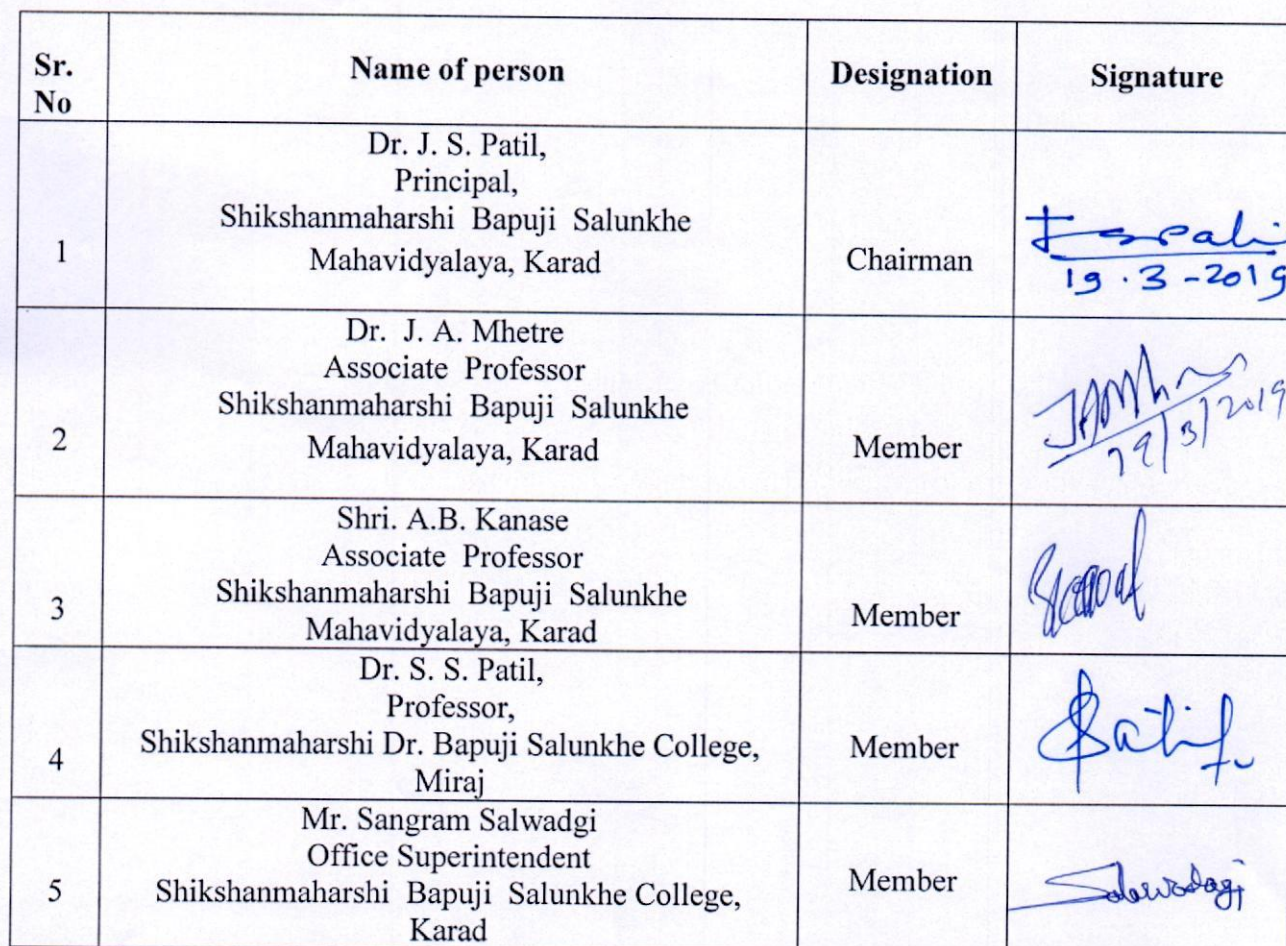 Sr. No Name of person Designation Signature
Dr. J. S. Patil,
Principal,
Shikshanmaharshi Bapuji Salunkhe
1 Mahavidyalaya, Karad Chairman
19.3-2019
Dr. J. A. Mhetre
Associate Professor
Shikshanmaharshi Bapuji Salunkhe
2 Mahavidyalaya, Karad Member
19/3/2019
Shri. A.B. Kanase
Associate Professor
Shikshanmaharshi Bapuji Salunkhe
3 Mahavidyalaya, Karad Member
Dr. S. S. Patil,
Professor,
Shikshanmaharshi Dr. Bapuji Salunkhe College,
4 Miraj Member
Mr. Sangram Salwadgi
Office Superintendent
5 Shikshanmaharshi Bapuji Salunkhe College, Member
Karad